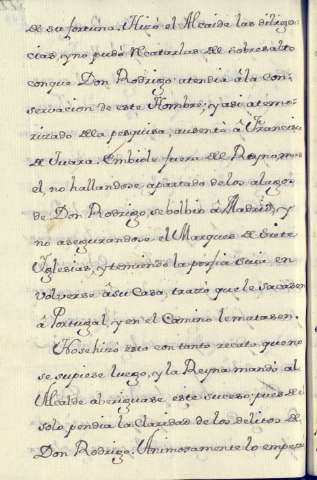 de su fortuna. Hizo el Alcaide las diligen
cias, y no pudo recatarlas del sobresalto
conque Don Rodrigo atendia â la con-
servacion de este Hombre; y asi atemo-
rizado de la pesquisa, ausentò â Francisco
de Juara. Embiole fuera del Reyno, mas
el, no hallandose apartado de los alagos
de Don Rodrigo, se bolbiò â Madrid, y
no asegurandose el Marques de Siete
Yglesias, y teniendo la porfia en
volverse â su Casa, trazò que le sacasen
â Portugal, y en el Camino le matasen.
No se hizo esto con tanto recato, que no
se supiese luego, y la Reyna mandò al
Alcalde aberiguase este suceso, pues de
solo pendia la Claridad de los delitos de
Don Rodrigo. Animosamente lo empezo